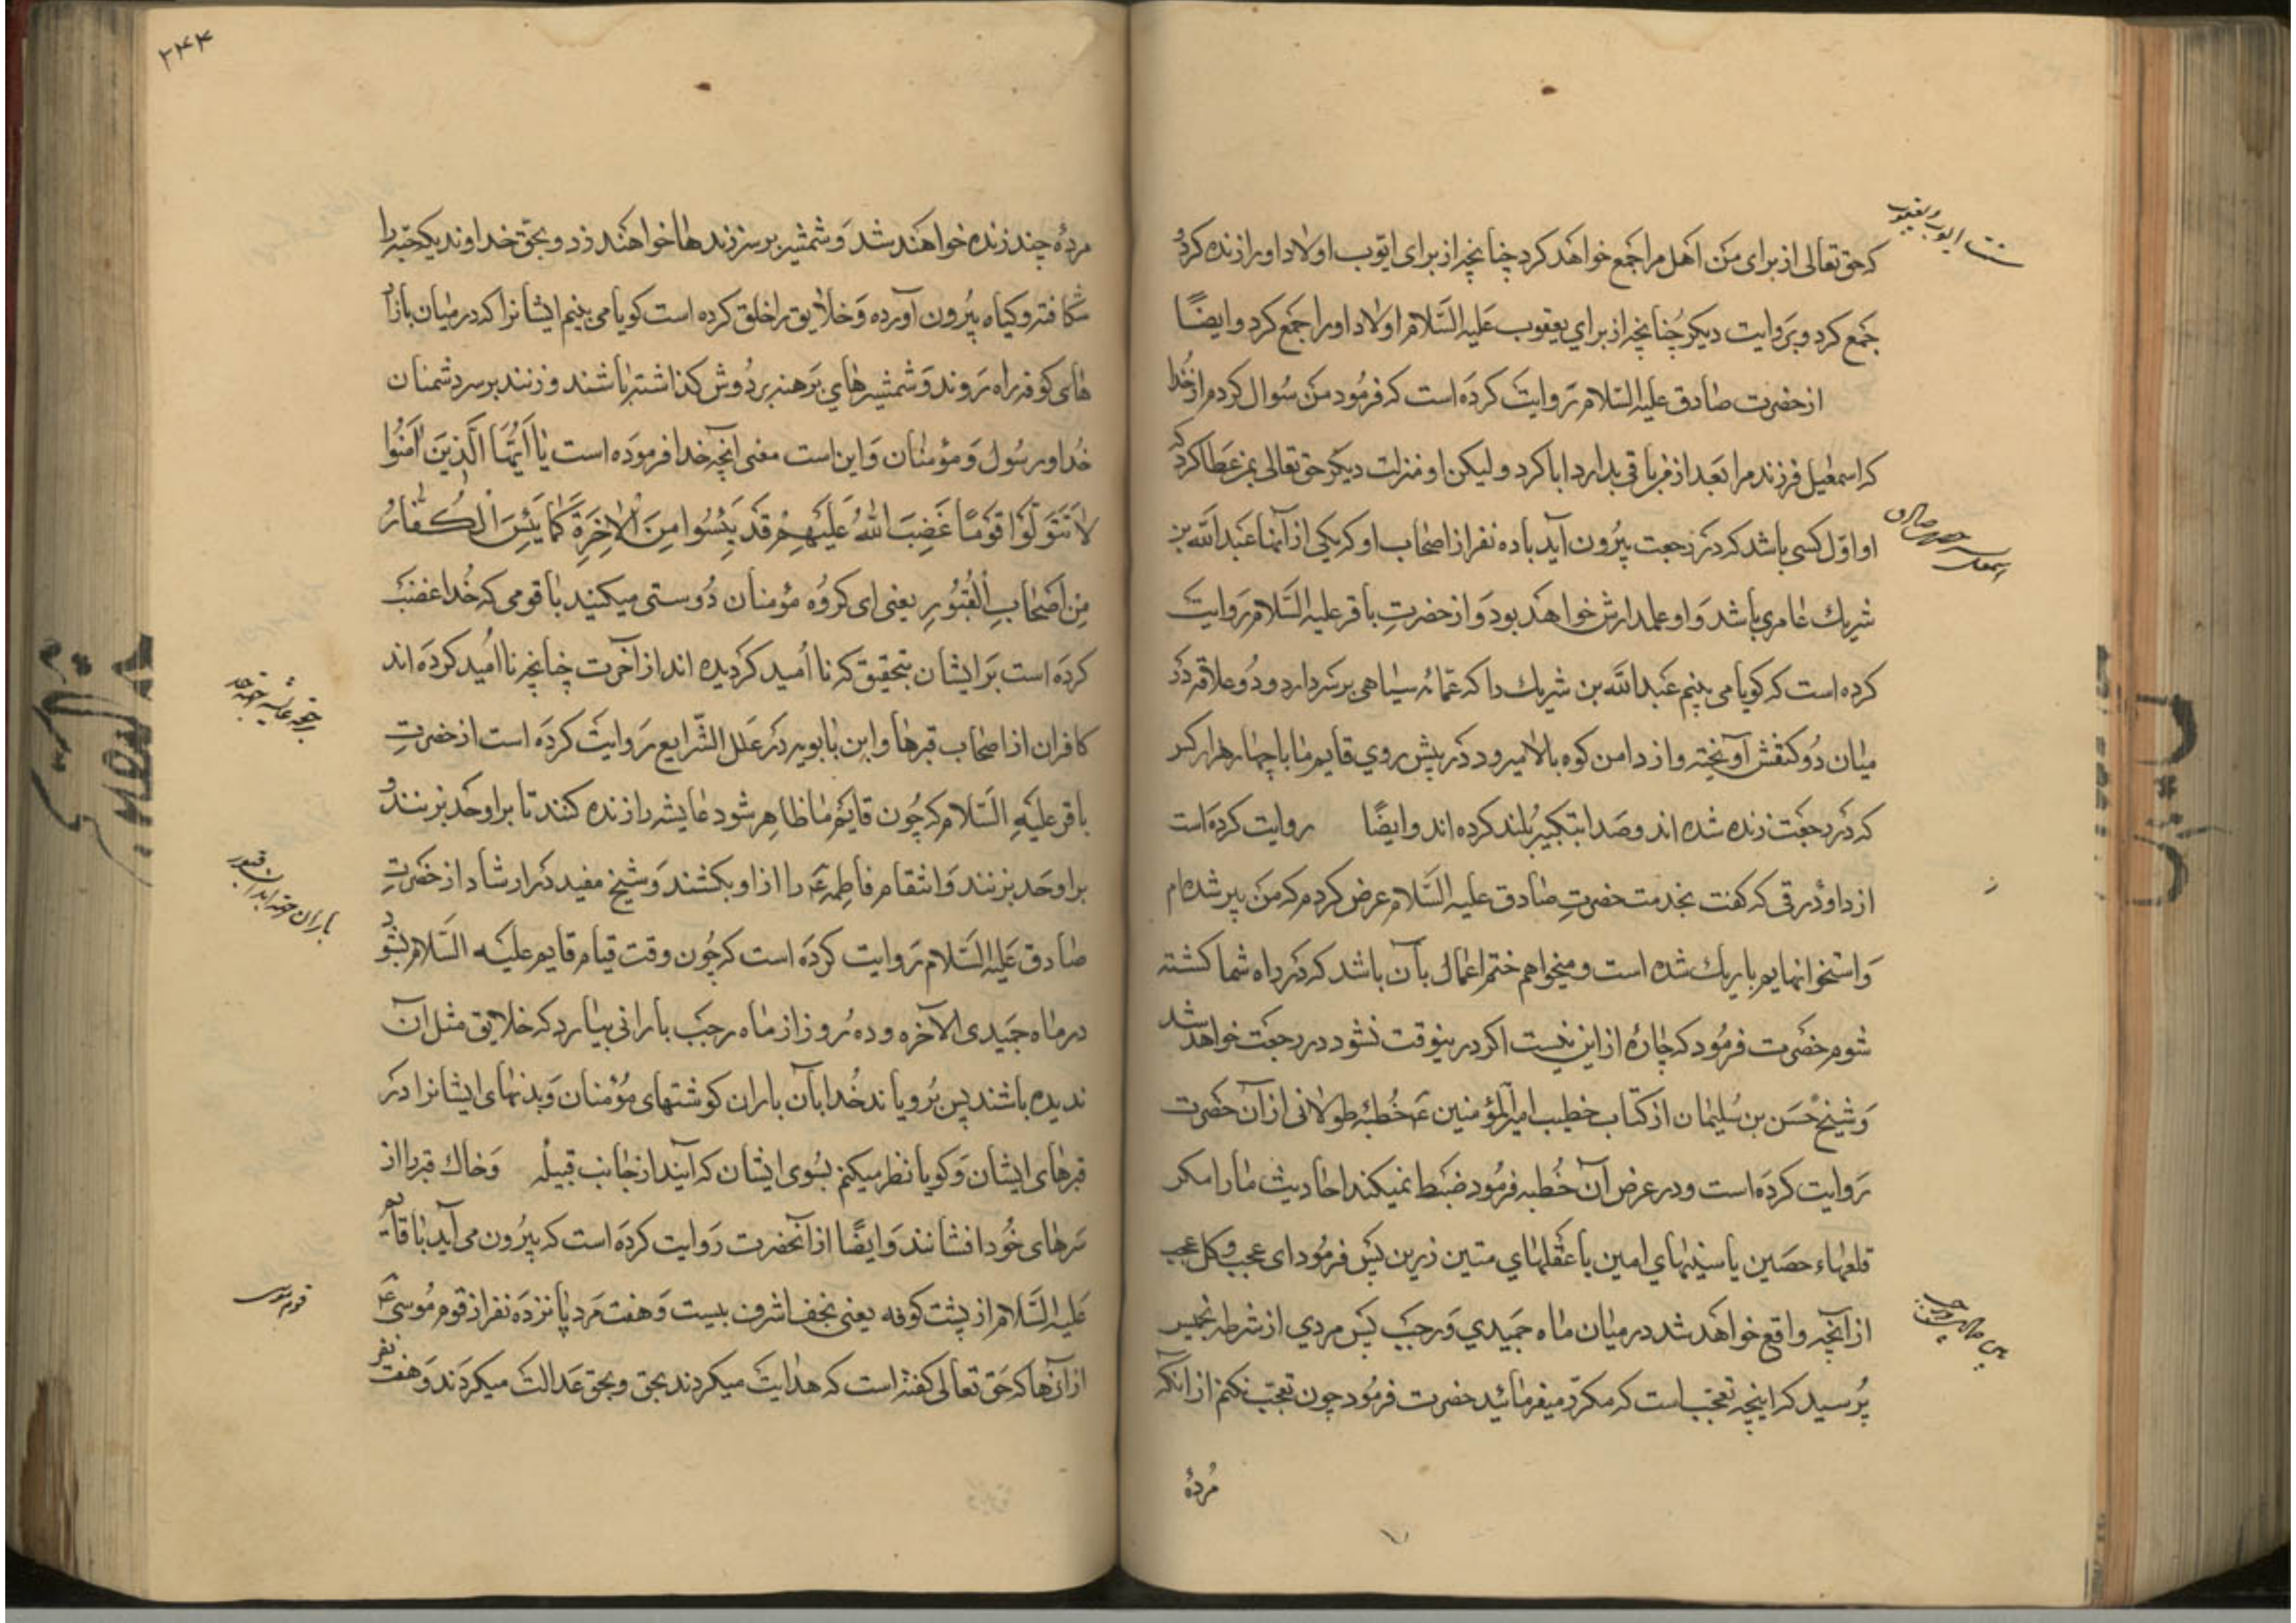 که حق تعالی از برای من اهل مرا جمع خواهد کرد چنانچه از برای ایّوب اولاد او را زنده کرد و
جمع کرد و بروایت دیکر چُنانچه از براي یعقوب عَلیه السَّلام اولاد او را جمع کرد و ایضًا
از حضرت صادق علیه السّلام روایت کرده است که فرمُود من سُوال کردم از خُدا
که اسمعیل فرزند مرا بَعد از من باقی بدارد ابا کرد و لیکن او منزلت دیکر حق تعالی بمن عَطا کرد که
او اوّل کسی باشد که در رجعت بیرُون آید با ده نفر از اصحاب او که یکی از آنها عَبد الله بن
شریك عامري باشد وَ او علمدارش خواهد بود وَ از حضرتِ باقر علیه السَّلام روایت
کرده است که کویا می بینم عَبد الله بن شریك را که عمّامه سیاهی بر سَر دارد و دُو علاقه در
میان دُو کتفش آویخته و از دامن کوه بالا میرود در پیش روي قایم ما با چهار هزار کس
که در رجعت زنده شده اند و صَدا بتکبیر بُلند کرده اند و ایضًا روایت کرده است
از داود رقی که کفت بخدمت حضرتِ صادق علیه السَّلام عرض کردم که من پیر شده ام
وَ استخوانهایم باریك شده است و میخواهم ختم اعمال بآن باشد که در راه شما کشته
شوم حضرت فرمُود که چارهٔ از این نیست اکر در ینوقت نشود در رجعَت خواهد شد
وَ شیخ حَسَن بن سُلیمان از کتاب خطیب امیرالمؤمنین ع خُطبه طولانی از آن حضرت
روایت کرده است و در عرض آن خُطبه فرمُود ضبَط نمیکند احادیث ما را مکر
قلعهاء حصین یا سینهاي امین یا عقلهاي متین زیرن پس فرمُود ای عجب و کل عجب
از آنچه واقع خواهد شد در میان ماه جمیدي وَ رجبَ پس مردي از شرطه خمیس
پُرسید که اینچه تعجّب است که مکرّر میفرمائید حضرت فرمُود چون تعجّب نکنم از آنکه
مُردهٔ
سنت ایوب و یعقوب
۲۴۴
مردهٔ چند زنده خواهند شد وَ شمشیر بر سر زندها خواهند زد و بحقّ خداوندیکه حبّه را
شکافته و کیاه بیرُون آورده وَ خلایق را خلق کرده است کویا می بینم ایشانرا که در میان بازار
های کوفه راه روند وَ شمشیرهاي برهنه بر دُوش کذاشته باشند و زنند بر سر دشمنان
خُدا و رسُول وَ مؤمنان وَ این است معنی آنچه خدا فرمودَه است یٰا اَیُّهَا الَّذینَ اٰمَنُوا
لاٰ تَتَوَلَّوْا قَوْمًا غَضِبَ اللهُ عَلَیْهِمْ قَدْ یَئِسُوا مِنَ الْاٰخِرَةِ کَمٰا یَئِسَ الْکُفّٰارُ
مِن اَصْحٰابِ الْقُبُورِ یعنی ای کروُه مؤمنان دُوستی میکنید با قومی که خُدا غضب
کرده است بَر ایشان بتحقیق که نا اُمید کردیده اند از آخرت چنانچه نا اُمید کرده اند
کافران از اصحاب قبرها و ابن بابویه در علل الشّرایع روایت کردَه است از حضرتِ
باقر علیهِ السَّلام که چُون قایم ما ظاهر شود عایشه را زنده کنند تا بر او حَد بزنند و
بر او حَد بزنند وَ انتقام فاطمه ع را از او بکشند وَ شیخ مفید در ارشاد از حضرتِ
صادق عَلیه السَّلام روایت کرده است که چُون وقت قیام قایم علیه السّلام بشود
در ماه جمَیدی الآخره و ده روز از ماه رجب بارانی ببارد که خلایق مثل آن
ندیده باشند پس برُویاند خُدا بآن باران کوشتهای مُؤمنان وَ بدنهای ایشانرا در
قبرهای ایشان وَ کویا نظر میکنم بسُوی ایشان که آیند از جانب قبیله وَ خاك قبر را از
سَرهای خُود افشانند وَ ایضًا از آنحضرت روایت کردَه است که بیرُون می آید با قایم
علیه السَّلام از پشت کوفه یعنی نجف اشرف بیست وَ هفت مَرد پانزدَه نفر از قوم مُوسی ع
از آنها که حَق تعالی کفته است که هدایت میکردند بحق و بحق عَدالت میکردَند وَ هفت نفر
قوم موسی